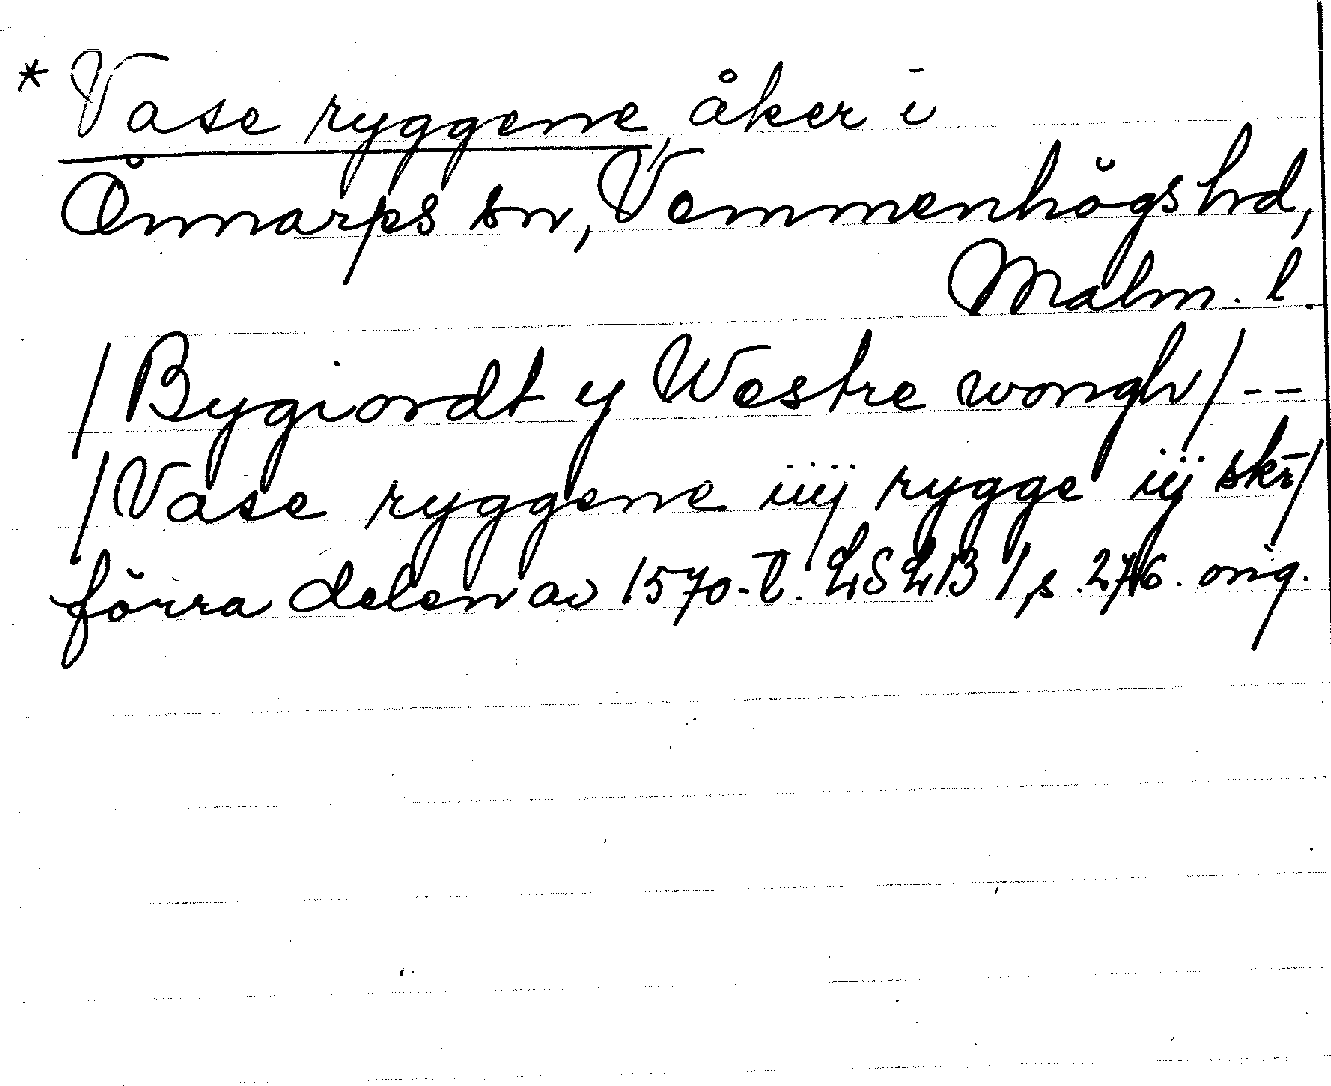 * Vase ryggene, åker i
Önnarps sn, Vemmenhögs hd,
Malm. l.
/Bygiordt y Westre wongh/ --
/Vase ryggene iiij rygge iij skr/
förra delen av 1570-t. LSLB 1, s. 276. orig.